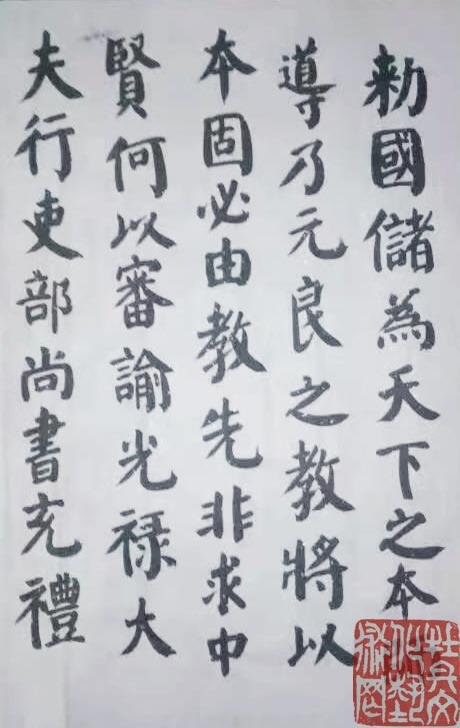 勅國儲為天下之本
導乃元良之教將以
本固必由教先非求中
賢何以審諭光禄大
夫行吏部尚書充禮